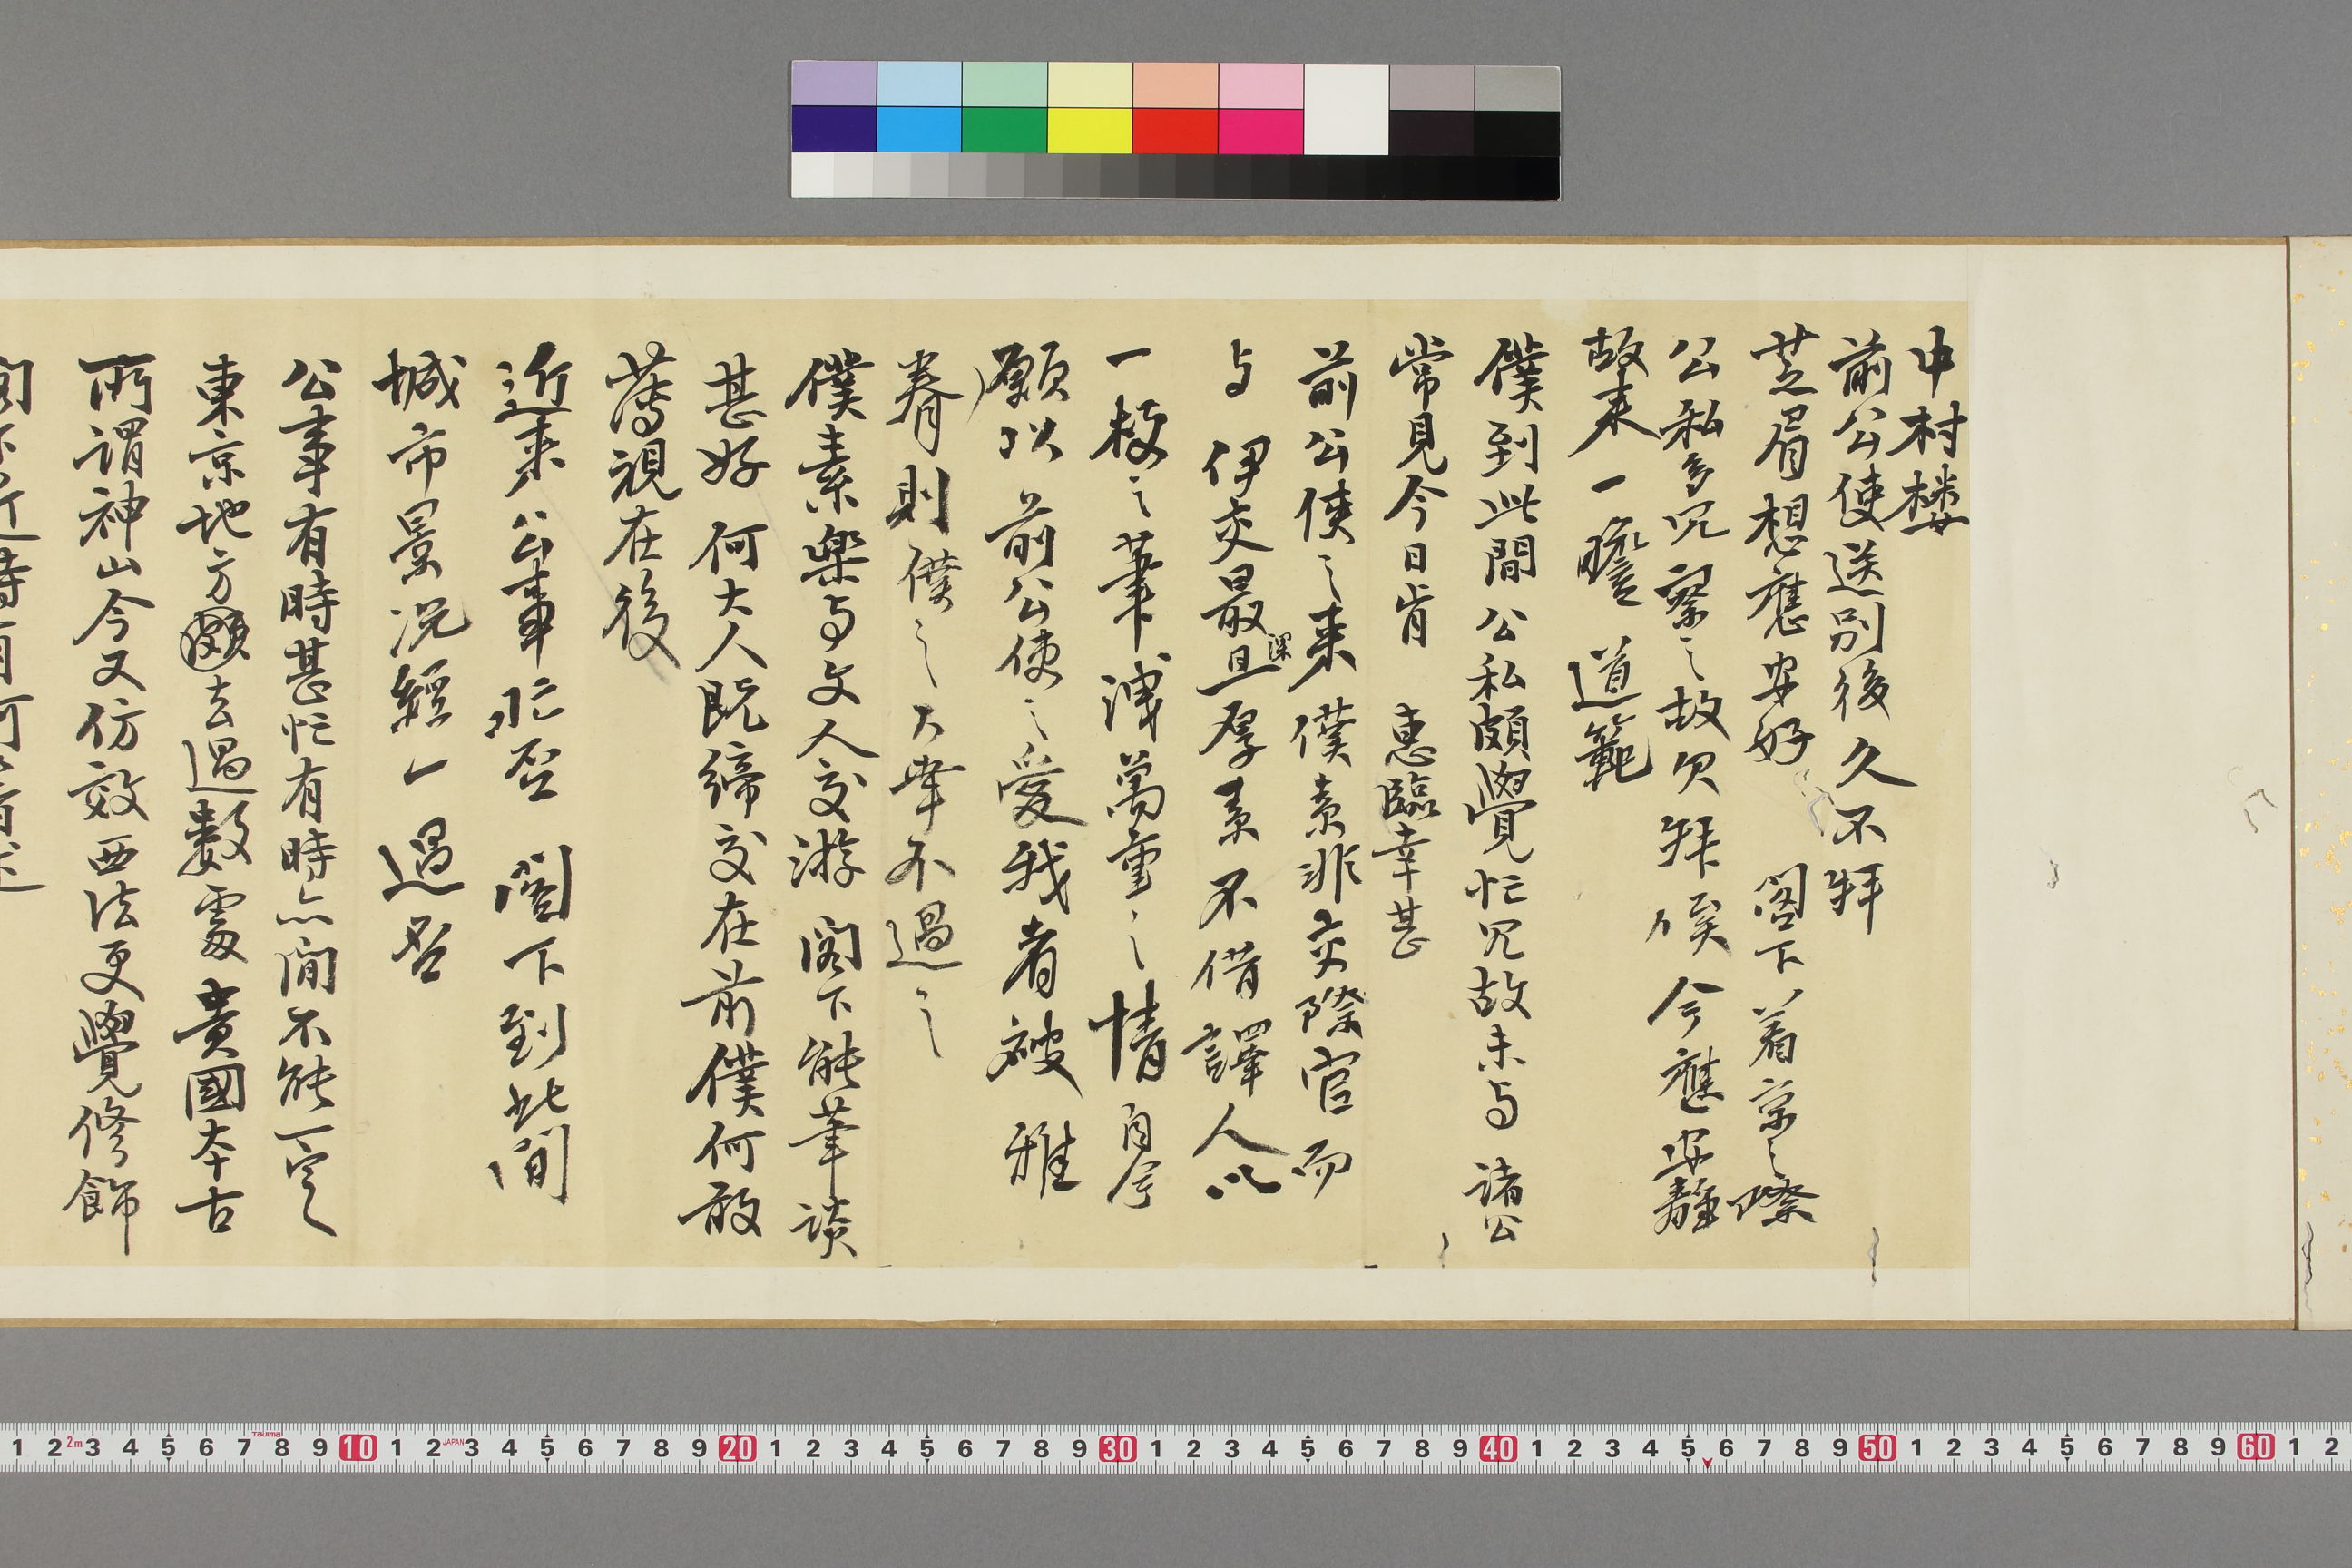 中村楼
前公使送別後久不拜
芝眉想應安好 閣下着京之際
公私多冗察之故欠拜候今應安靜
故来一瞻 道範
僕到此間公私頗覺忙冗故未与 諸公
常見今日肯 惠臨幸甚
前公使之来僕素非交際官而
与 伊交最深且厚素不借譯人以
一枝之筆洩萬重之情自今
願以 前公使之愛我者被 雅
眷則僕之大幸不過之
僕素樂与文人交游閣下能筆談
甚好 何大人既締交在前僕何敢
薄視在後
近来公事忙否 閣下到此間
城市景况經一過否
公事有時甚忙有時亦閒不能一定
東京地方頗去過數處貴國本古
所謂神山今又仿效西法更覺修飾